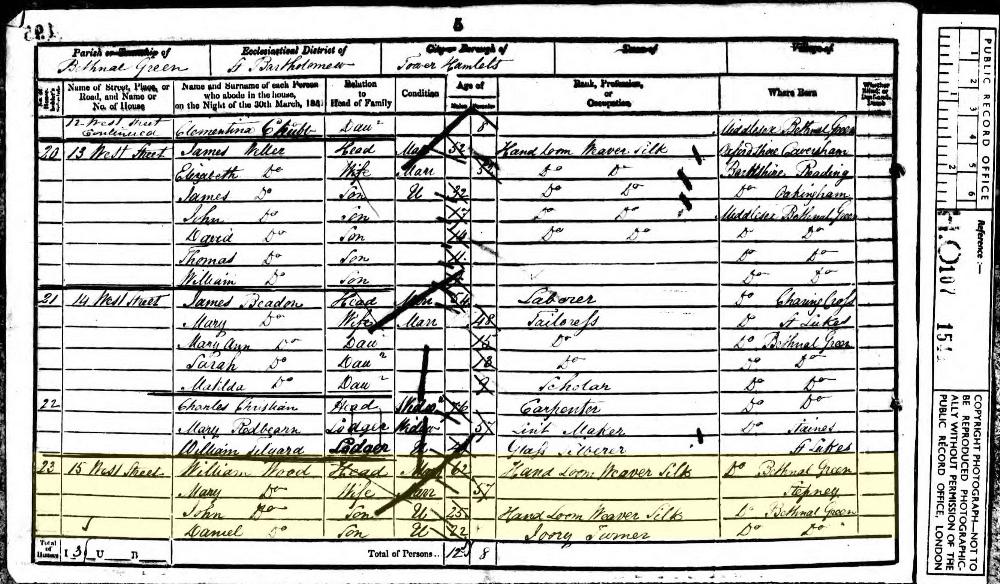 5
Parish or Township of Ecclesiastical District of City or Borough of Town of Village of
Bethnal Green St Bartholomew Tower Hamlets
Name of Street, Place, or Road, and Name or No. of House
Name and Surname of each Person who abode in the house, on the Night of the 30th March, 1851
Relation to Head of Family
Condition
Age of
Males Females
Rank, Profession, or Occupation
Where Born
Whether Blind, or Deaf-and-Dumb
12 West Street Continued Clementina Chubb Daur 8 Middlesex Bethnal Green
20 13 West Street James Weller Head Mar 52 Hand Loom Weaver Silk Oxfordshire Caversham
Elizabeth Do Wife Marr Do Do Barkshire Reading
James Do Son U 22 Do Do Do Oakingham
John Do Son Do Do Middlesex Bethnal Green
David Do Son 14 Do Do Do Do
Thomas Do Son 11 Do Do
William Do Son Do Do
21 14 West Street James Beadon Head Mar 54 Laborer Do Charing Cross
Mary Do Wife Marr 48 Tailoress Do St Lukes
Mary Ann Do Dau 15 Do Do Bethnal Green
Sarah Do Daur Do Do Do
Matilda Do Daur 9 Scholar Do Do
22 Charles Christian Head Widor 76 Carpenter Do Do
Mary Redbearn Lodger Widow 57 Lint Maker Do Staines
William Lodger U Glass Silverer St Lukes
23 15 West Street William Wood Head Mar 62 Hand Loom Weaver Silk Do Bethnal Green
Mary Do Wife Marr 57 Stepney
John Do Son U 25 Hand Loom Weaver Silk Do Bethnal Green
Daniel Do Son U 22 Ivory Turner Do Do
Total of Houses I 3 U B Total of Persons.. 12 8
PUBLIC RECORD OFFICE
1 2 3 4 5 6
Reference :-
H.O. 107
COPYRIGHT PHOTOGRAPH—NOT TO BE REPRODUCED PHOTOGRAPHICALLY WITHOUT PERMISSION OF THE PUBLIC RECORD OFFICE, LONDON